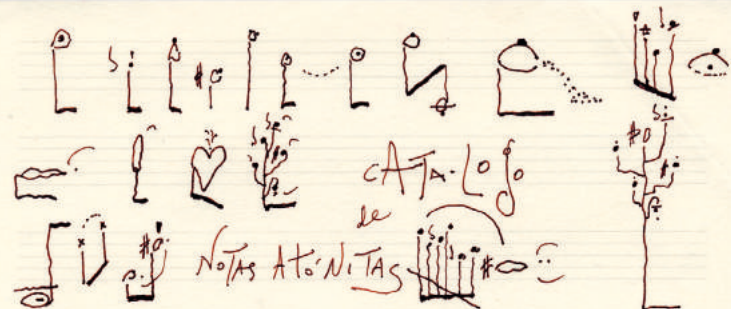 CATA-LOGO
de
NOTAS ATÓNITAS